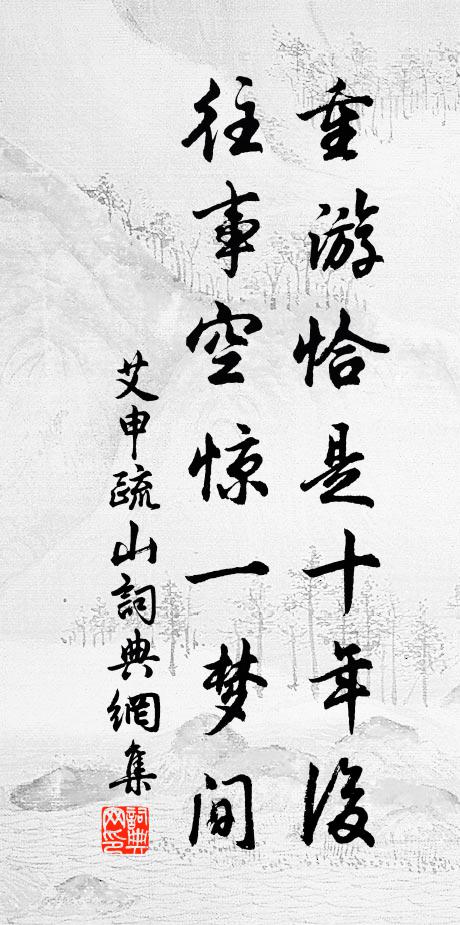 重游恰是十年後
往事空惊一梦间
艾申疏山詞典網集
詞典网印